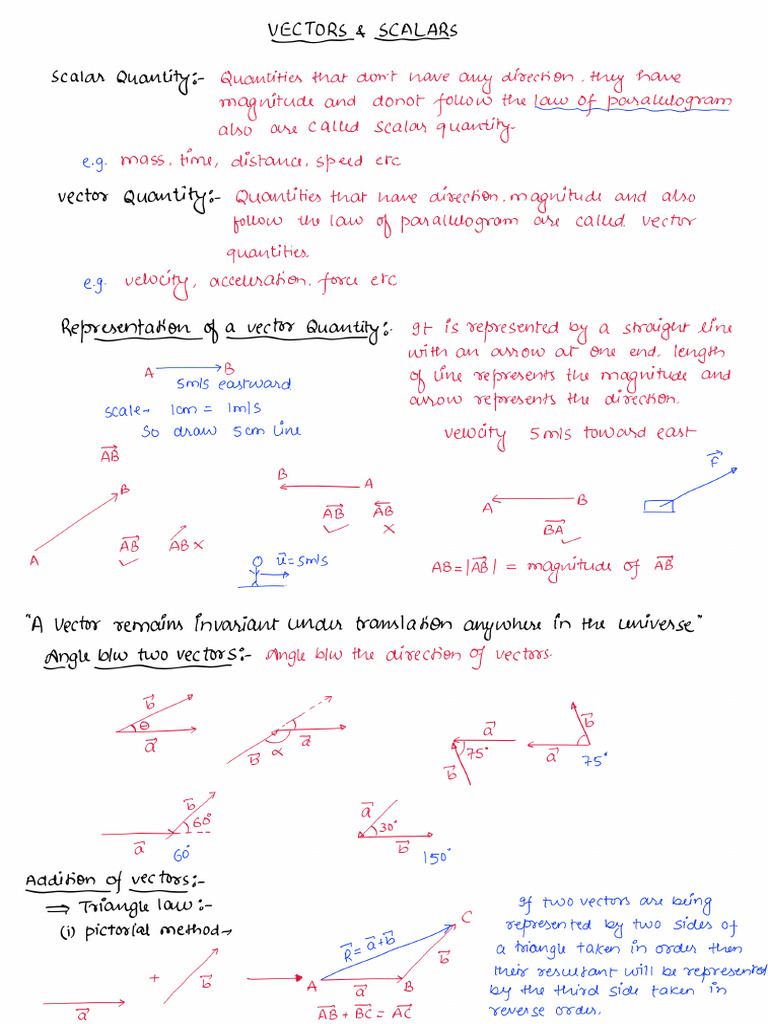 VECTORS & SCALARS
Scalar Quantity:- Quantities that don't have any direction, they have
magnitude and donot follow the law of parallelogram
also are called scalar quantity.
e.g. mass, time, distance, speed etc
Vector Quantity:- Quantities that have direction, magnitude and also
follow the law of parallelogram are called vector
quantities.
e.g. velocity, acceleration, force etc
Representation of a vector Quantity:- It is represented by a straight line
with an arrow at one end, length
of line represents the magnitude and
arrow represents the direction.
A B
5m/s eastward
scale→ 1cm = 1m/s
So draw 5cm line
velocity 5m/s toward east
A⃗B⃗
A B
A⃗B⃗ AB ×
B A
A⃗B⃗ A⃖B⃖ ×
A B
B⃗A⃗
F⃗
u⃗ = 5m/s
AB = |A⃗B⃗| = magnitude of A⃗B⃗
"A vector remains invariant under translation anywhere in the universe"
Angle b/w two vectors:- Angle b/w the direction of vectors.
b⃗ θ a⃗
b⃗ α a⃗
a⃗ 75° b⃗
b⃗ a⃗ 75°
b⃗ 60° a⃗ 60°
a⃗ 30° b⃗ 150°
Addition of vectors:-
⇒ Triangle law:-
(i) pictorial method→
a⃗ + b⃗
R⃗ = a⃗ + b⃗
A a⃗ B b⃗ C
A⃗B⃗ + B⃗C⃗ = A⃗C⃗
If two vectors are being
represented by two sides of
a triangle taken in order then
their resultant will be represented
by the third side taken in
reverse order.